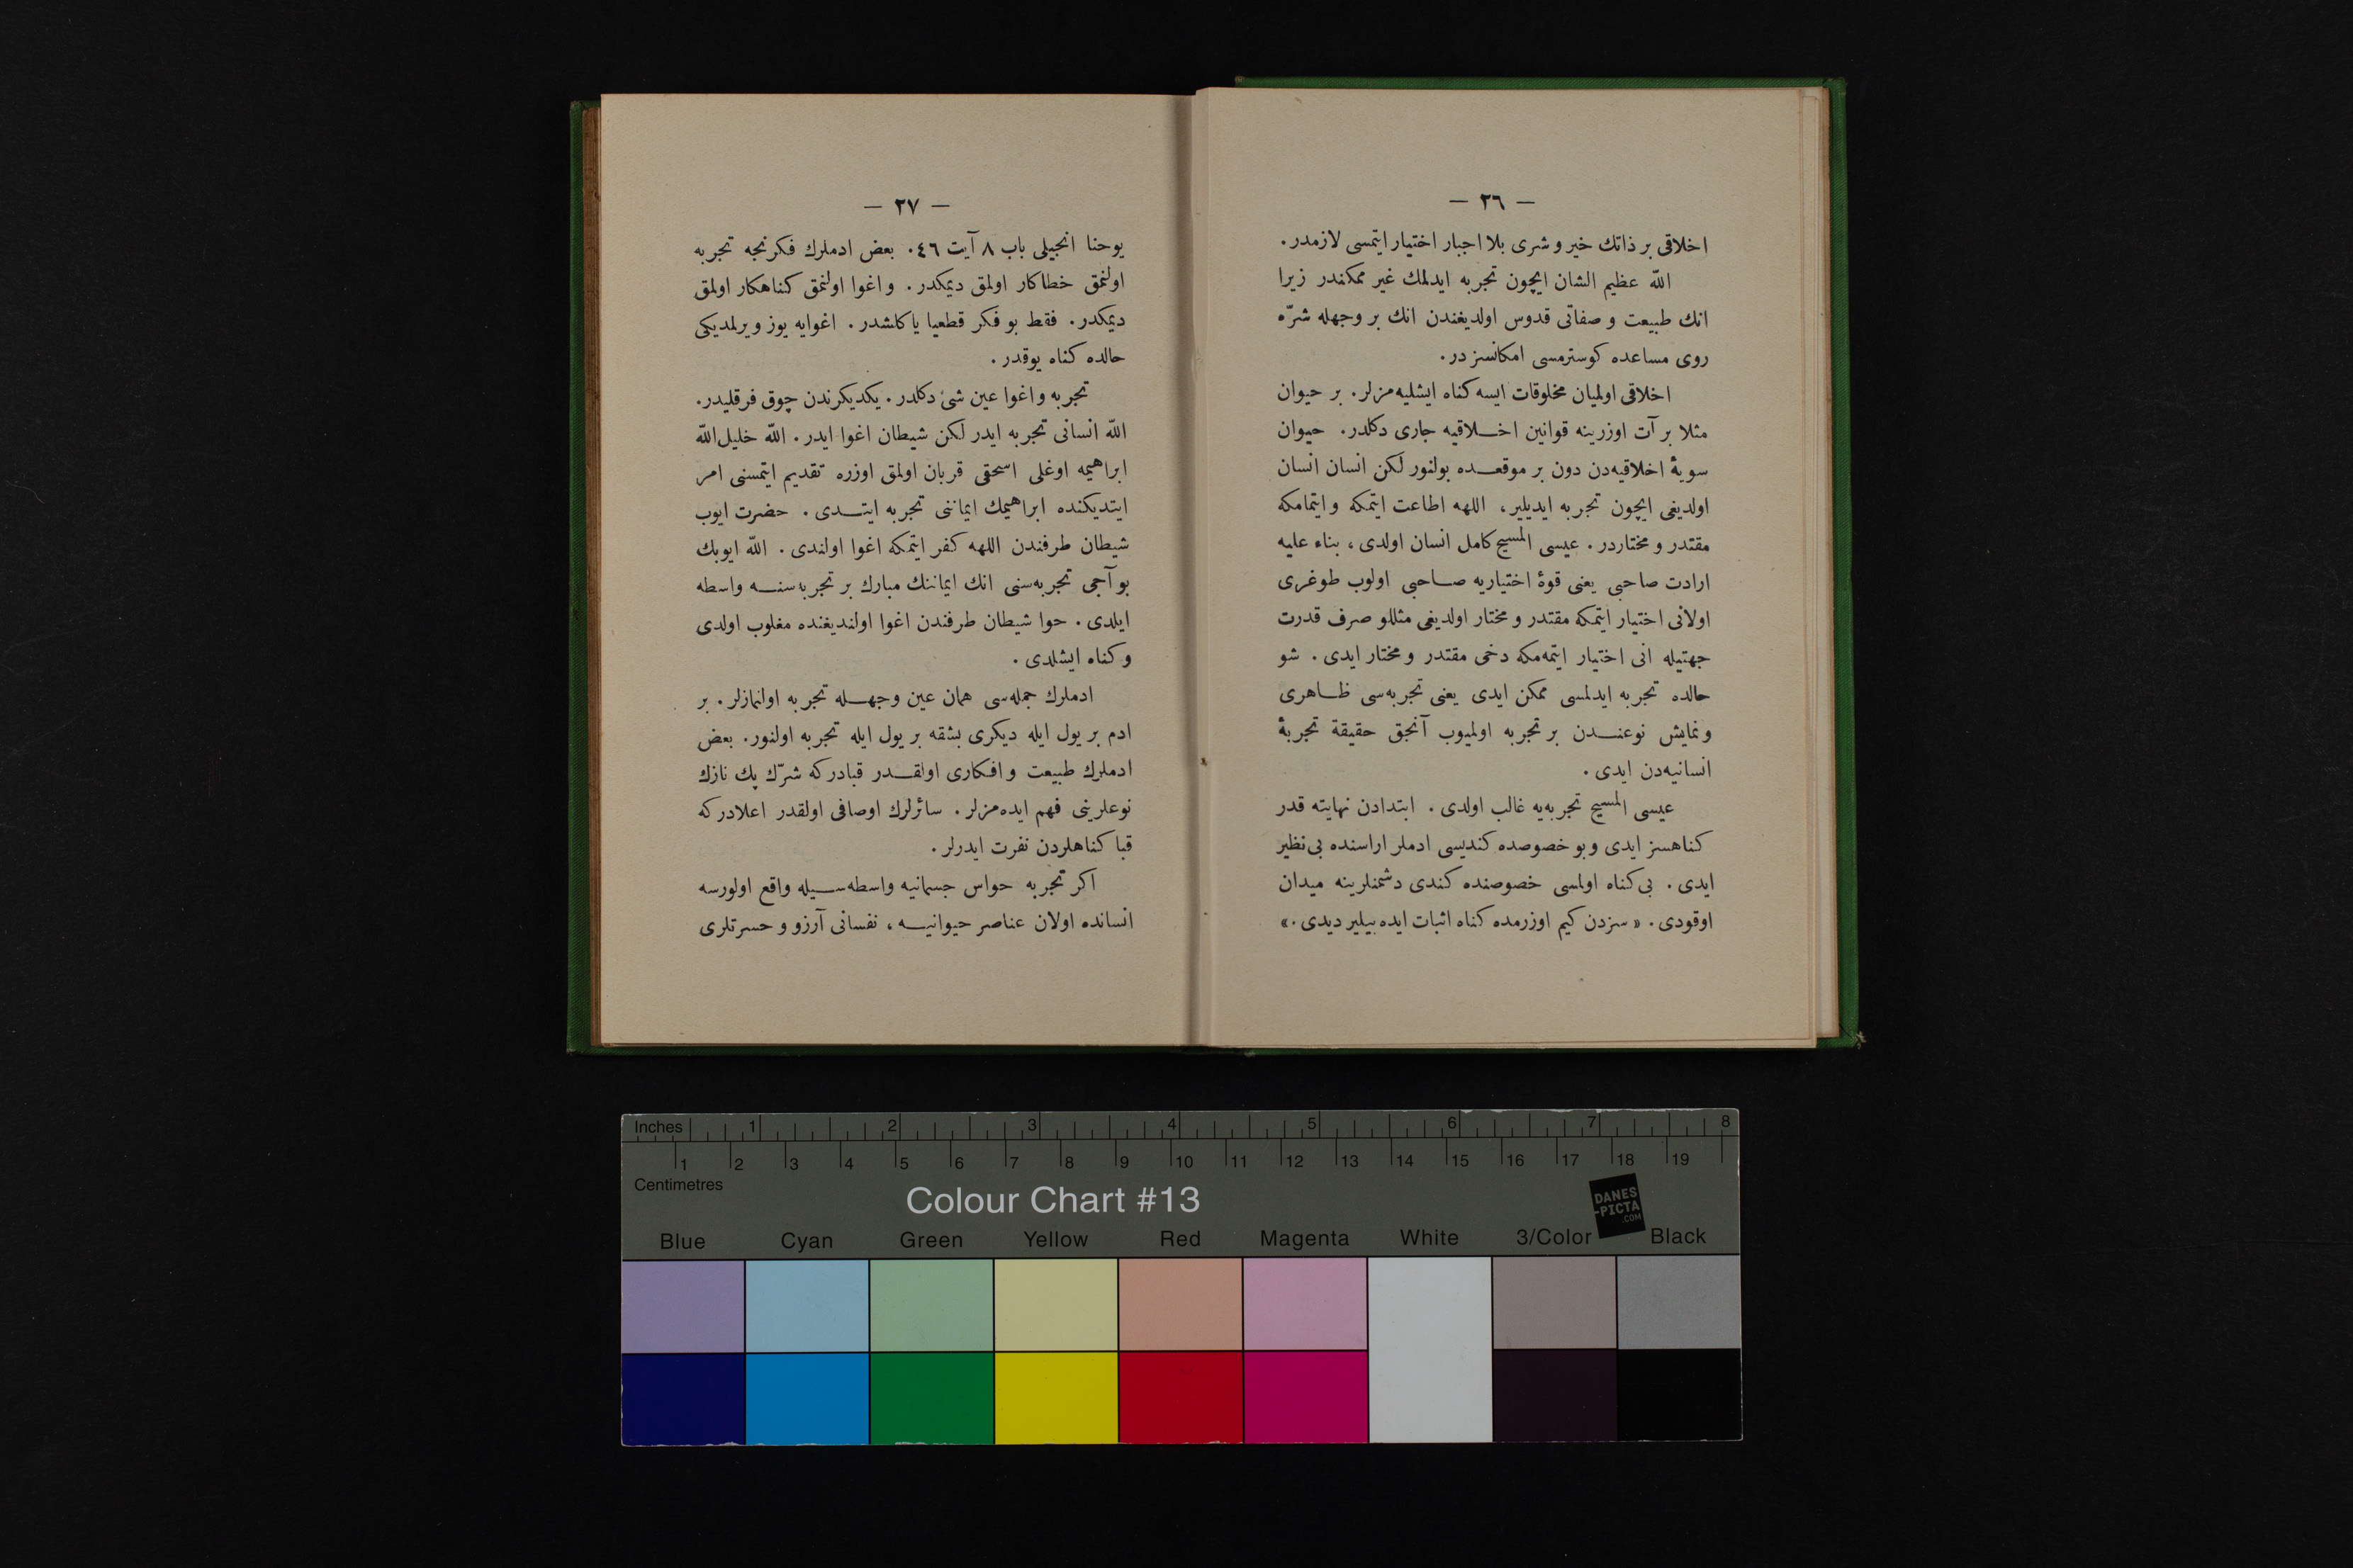 — ٣٦ —
اخلاقی بر ذاتك خیر و شری بلا اجبار اختیار ایتمسی لازمدر.
اللّه عظیم الشان ایچون تجربه ایدلمك غیر ممکندر زیرا
انك طبیعت و صفاتی قدوس اولدیغندن انك بر وجهله شرّه
روی مساعده کوسترمسی امکانسز در.
اخلاقی اولمیان مخلوقات ایسه کناه ایشلیه‌مزلر. بر حیوان
مثلا بر آت اوزرینه قوانین اخـلاقیه جاری دکلدر. حیوان
سویۀ اخلاقیه‌دن دون بر موقعـده بولنور لکن انسان انسان
اولدیغی ایچون تجربه ایدیلیر، اللهه اطاعت ایتمکه و ایتمامکه
مقتدر و مختاردر. عیسی المسیح کامل انسان اولدی، بناء علیه
ارادت صاحبی یعنی قوۀ اختیاریه صـاحبی اولوب طوغری
اولانی اختیار ایتمکه مقتدر و مختار اولدیغی مثللو صرف قدرت
جهتیله انی اختیار ایتمه‌مکه دخی مقتدر و مختار ایدی. شو
حالده تجربه ایدلمسی ممکن ایدی یعنی تجربه‌سی ظـاهری
ونمایش نوعنـدن بر تجربه اولمیوب آنجق حقیقة تجربۀ
انسانیه‌دن ایدی.
عیسی المسیح تجربه‌یه غالب اولدی. ابتدادن نهایته قدر
کناهسز ایدی و بو خصوصده کندیسی ادملر اراسنده بی‌نظیر
ایدی. بی‌کناه اولمسی خصوصنده کندی دشمنلرینه میدان
اوقودی. «سزدن کیم اوزرمده کناه اثبات ایده بیلیر دیدی.»
— ٣٧ —
یوحنا انجیلی باب ٨ آیت ٤٦. بعض ادملرك فکرنجه تجربه
اولنمق خطاکار اولمق دیمکدر. و اغوا اولنمق کناهکار اولمق
دیمکدر. فقط بو فکر قطعیا یاکلشدر. اغوایه یوز ویرلمدیکی
حالده کناه یوقدر.
تجربه و اغوا عین شیٔ دکلدر. یکدیکرندن چوق فرقلیدر.
اللّه انسانی تجربه ایدر لکن شیطان اغوا ایدر. اللّه خلیل‌اللّه
ابراهیمه اوغلی اسحقی قربان اولمق اوزره تقدیم ایتمسنی امر
ایتدیکنده ابراهیمك ایماننی تجربه ایتـدی. حضرت ایوب
شیطان طرفندن اللهه کفر ایتمکه اغوا اولندی. اللّه ایوبك
بو آجی تجربه‌سنی انك ایماننك مبارك بر تجربه‌سنـه واسطه
ایلدی. حوا شیطان طرفندن اغوا اولندیغنده مغلوب اولدی
و کناه ایشلدی.
ادملرك جمله‌سی همان عین وجهـله تجربه اولنمازلر. بر
ادم بر یول ایله دیکری بشقه بر یول ایله تجربه اولنور. بعض
ادملرك طبیعت و افکاری اولقـدر قبادر که شرّك پك نازك
نوعلرینی فهم ایده‌مزلر. سائرلرك اوصافی اولقدر اعلادر که
قبا کناهلردن نفرت ایدرلر.
اکر تجربه حواس جسمانیه واسطه‌سـیله واقع اولورسه
انسانده اولان عناصر حیوانیـه، نفسانی آرزو و حسرتلری
Inches 1 2 3 4 5 6 7 8
1 2 3 4 5 6 7 8 9 10 11 12 13 14 15 16 17 18 19
Centimetres
Colour Chart #13
DANES
-PICTA
.COM
Blue Cyan Green Yellow Red Magenta White 3/Color Black